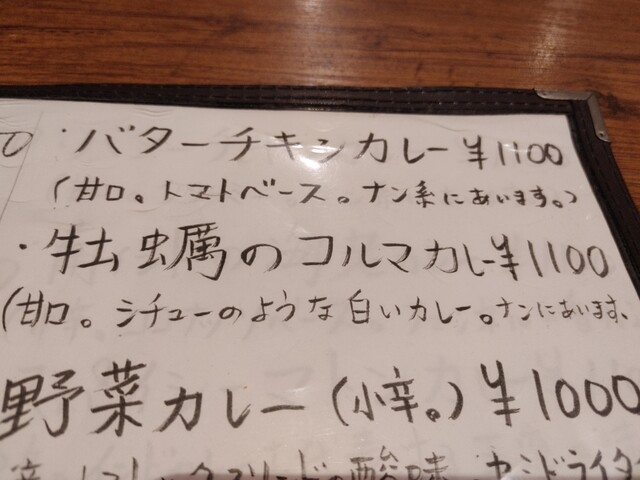 ・バターチキンカレー ¥1100
(甘口。トマトベース。ナン系にあいます。)
・牡蠣のコルマカレー ¥1100
(甘口。シチューのような白いカレー。ナンにあいます、
野菜カレー(小辛。) ¥1000
の酸味、ヤシドライタ